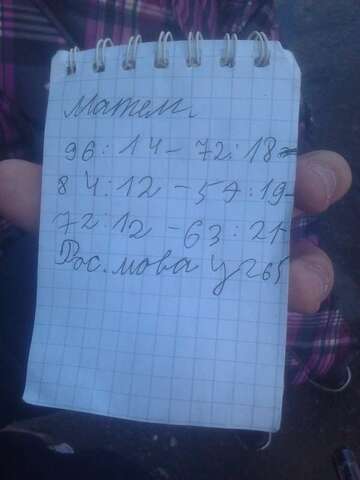 Матем.
96:14-72:18=
84:12-57:19-
72:12-63:21-
Рос. мова у 265